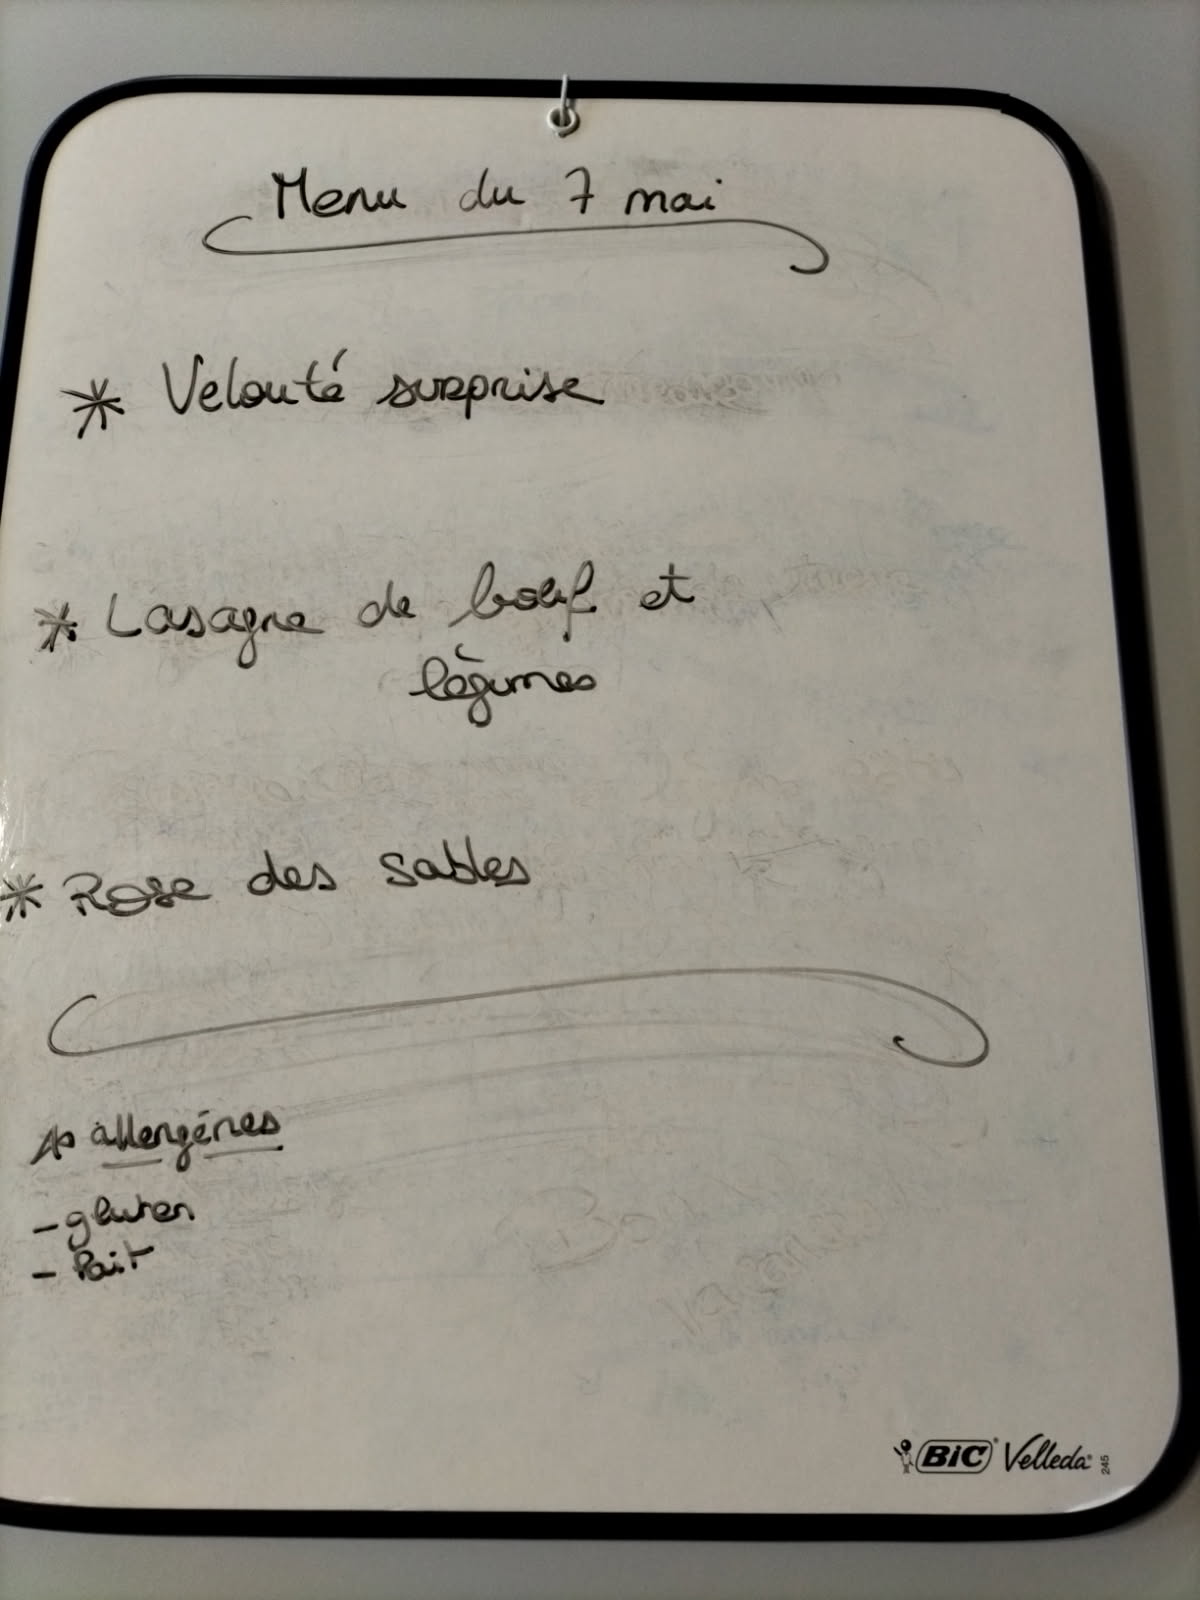 Menu du 7 mai
* Velouté surprise
* Lasagne de boeuf et
légumes
* Rose des sables
allergénes
- gluten
- lait
BIC Velleda 245